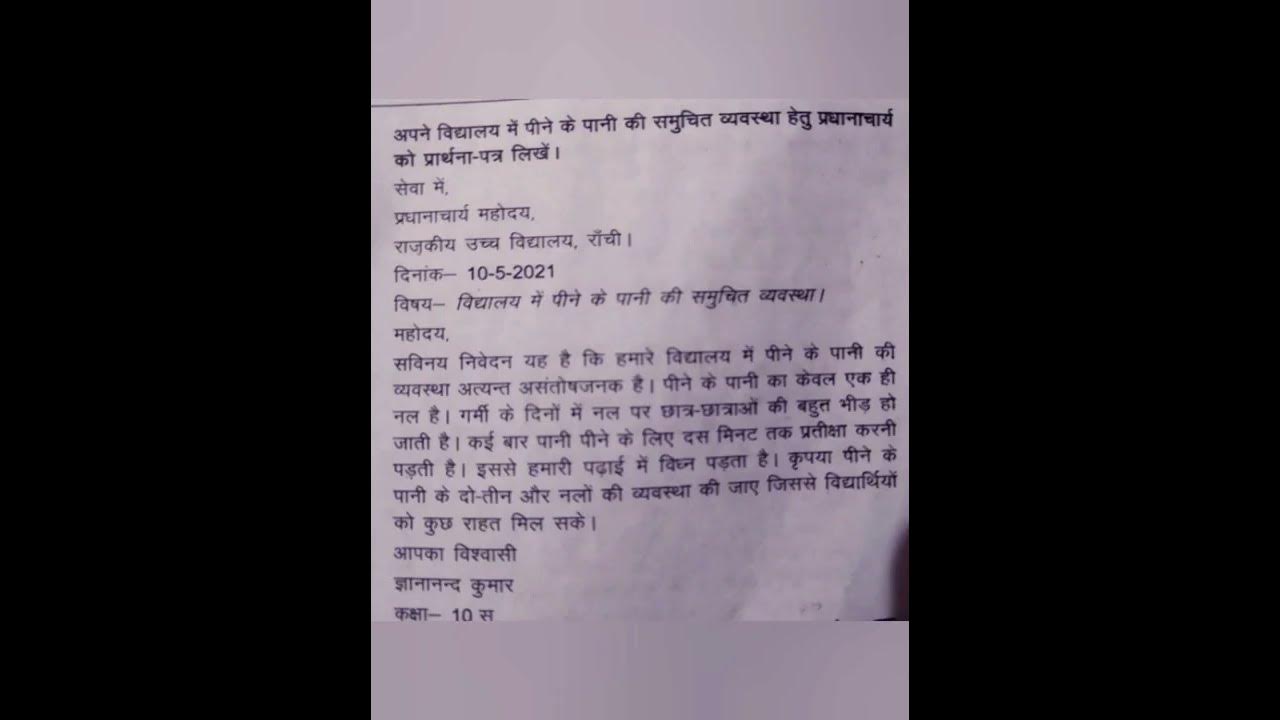 अपने विद्यालय में पीने के पानी की समुचित व्यवस्था हेतु प्रधानाचार्य
को प्रार्थना-पत्र लिखें।
सेवा में,
प्रधानाचार्य महोदय,
राजकीय उच्च विद्यालय, राँची।
दिनांक– 10-5-2021
विषय– विद्यालय में पीने के पानी की समुचित व्यवस्था।
महोदय,
सविनय निवेदन यह है कि हमारे विद्यालय में पीने के पानी की
व्यवस्था अत्यन्त असंतोषजनक है। पीने के पानी का केवल एक ही
नल है। गर्मी के दिनों में नल पर छात्र-छात्राओं की बहुत भीड़ हो
जाती है। कई बार पानी पीने के लिए दस मिनट तक प्रतीक्षा करनी
पड़ती है। इससे हमारी पढ़ाई में विघ्न पड़ता है। कृपया पीने के
पानी के दो-तीन और नलों की व्यवस्था की जाए जिससे विद्यार्थियों
को कुछ राहत मिल सके।
आपका विश्वासी
ज्ञानानन्द कुमार
कक्षा– 10 स